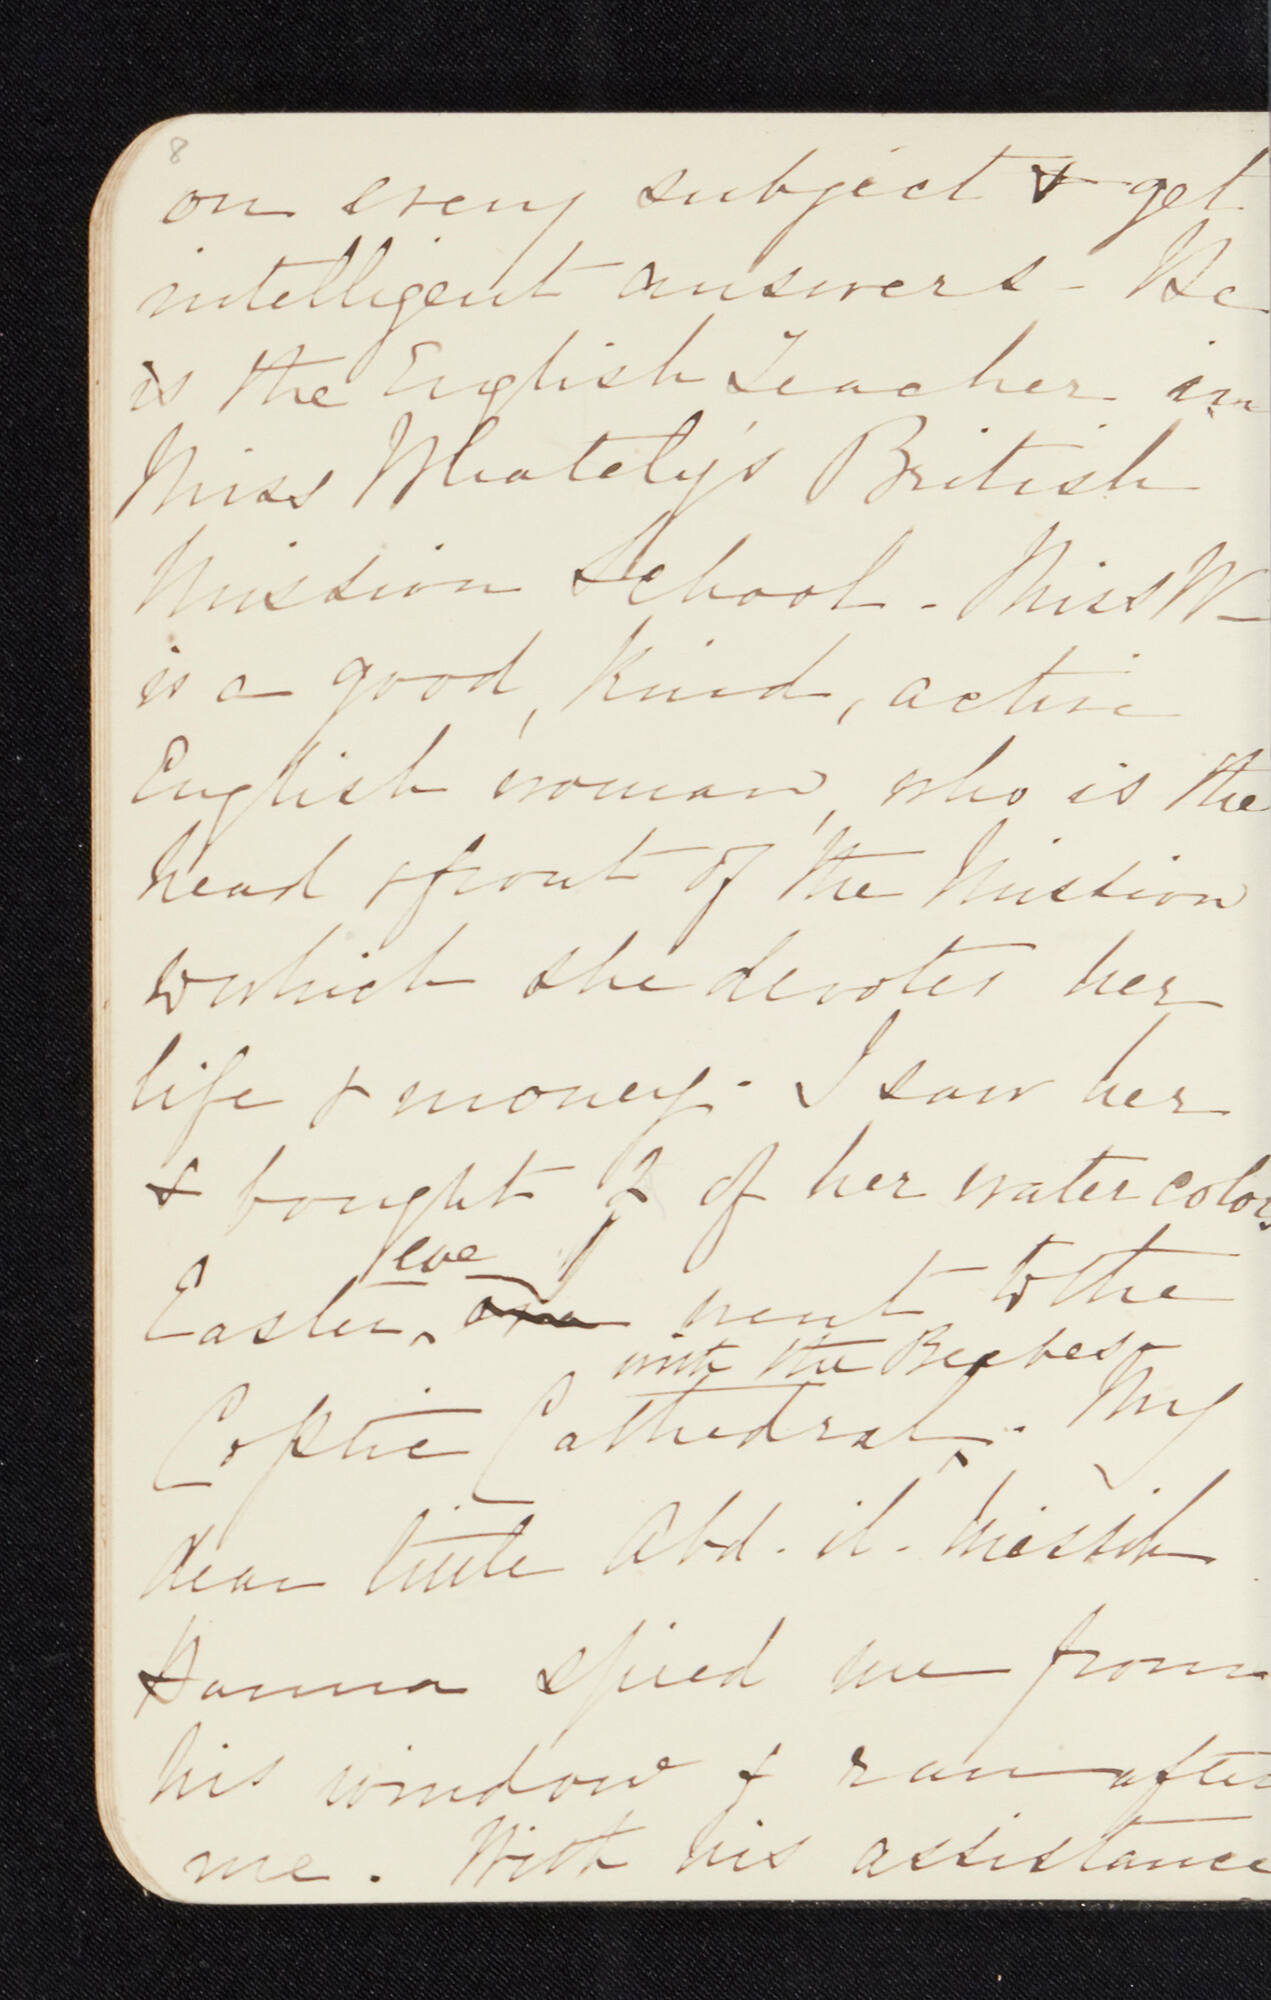 8
on every subject & get
intelligent answers - He
is the English Teacher in
Miss Whately's British
Mission School - Miss W-
is a good, kind, active
English woman, who is the
head & front of the Mission
to which she devotes her
life & money - I saw her
& bought 2 of her water colors
eve
Easter, went to the
with the Beebes &
Coptic Cathedral. My
dear little Abd. il. Missih
Hanna spied me from
his window & ran after
me. With his assistance